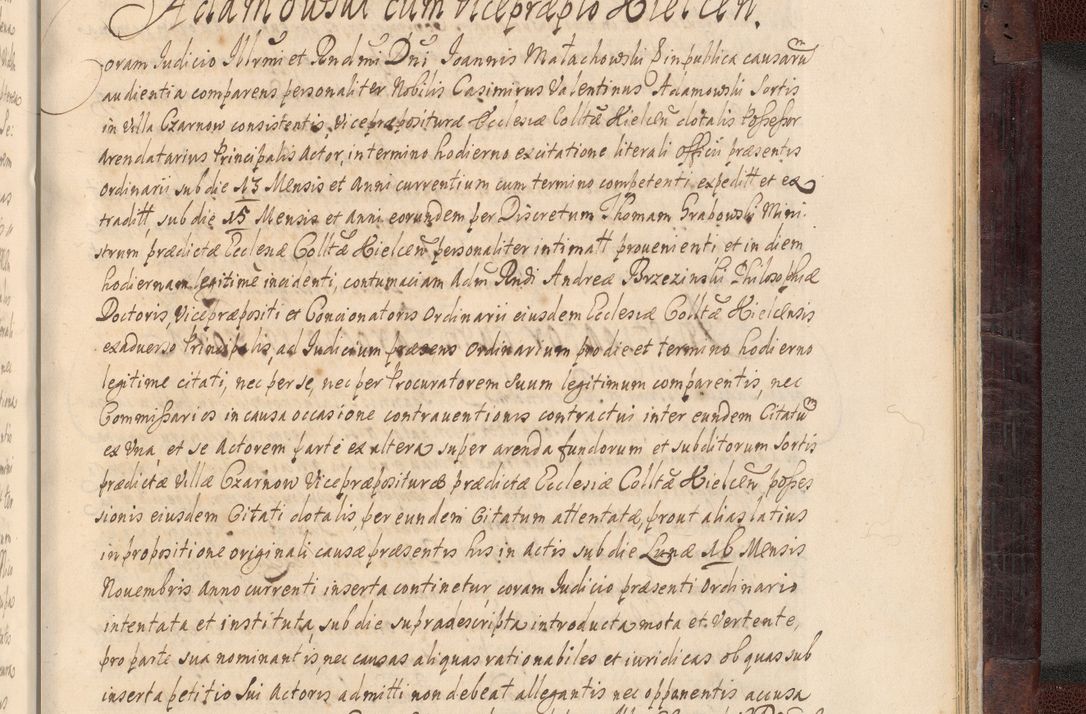 Adamowski cum Vicepræpto Kielcen.
Coram Iudicio Illrmi et Rndmi Dni Ioannis Małachowski E in publica causarum
audientia comparens personaliter Nobilis Casimirus Valentinus Adamowski Sortis
in Villa Czarnow consistentis, Vicepræposituræ Ecclesiæ Colltæ Kielcen dotalis Possessor
Arendatarius Principalis Actor, in termino hodierno ex citatione literali Officii præsentis
Ordinarii sub die 13 Mensis et Anni currentium cum termino competenti expeditt et ex
traditt, sub die 15 Mensis et anni eorundem per Discretum Thomam Grabowski Mini-
strum, prædictæ Ecclesiæ Colltæ Kielcen personaliter intimatt provenienti et in diem
hodiernam legitime incidenti, contumaciam Adm Rndi Andreæ Brzezinski Philosophiæ
Doctoris, Vicepræpositi et Concionatoris Ordinarii eiusdem Ecclesiæ Colltæ Kielcensis
ex adverso Principalis, ad Iudicium præsens Ordinarium pro die et termino hodierno
legitime citati, nec per se, nec per Procuratorem suum legitimum comparentis, nec
Commissarios in causa occasione contraventionis contractui inter eundem Citatum
ex Una, et se Actorem parte ex altera super arenda fundorum et subditorum Sortis
prædictæ Villæ Czarnow Vicepræposituræ prædictæ Ecclesiæ Colltæ Kielcen, posses
sionis eiusdem Citati dotalis, per eundem Citatum attentatæ, prout alias latius
in propositione originali causæ præsentis his in actis sub die Lunæ 16 Mensis
Novembris Anno currenti inserta continetur coram Iudicio præsenti Ordinario
intentata et instituta, sub die supradescripta introducta mota et Vertente,
pro parte sua nominantis, nec causas aliquas rationabiles et iuridicas ob quas sub
inserta petitio Sui Actoris admitti non debeat allegantis nec opponentis accusa